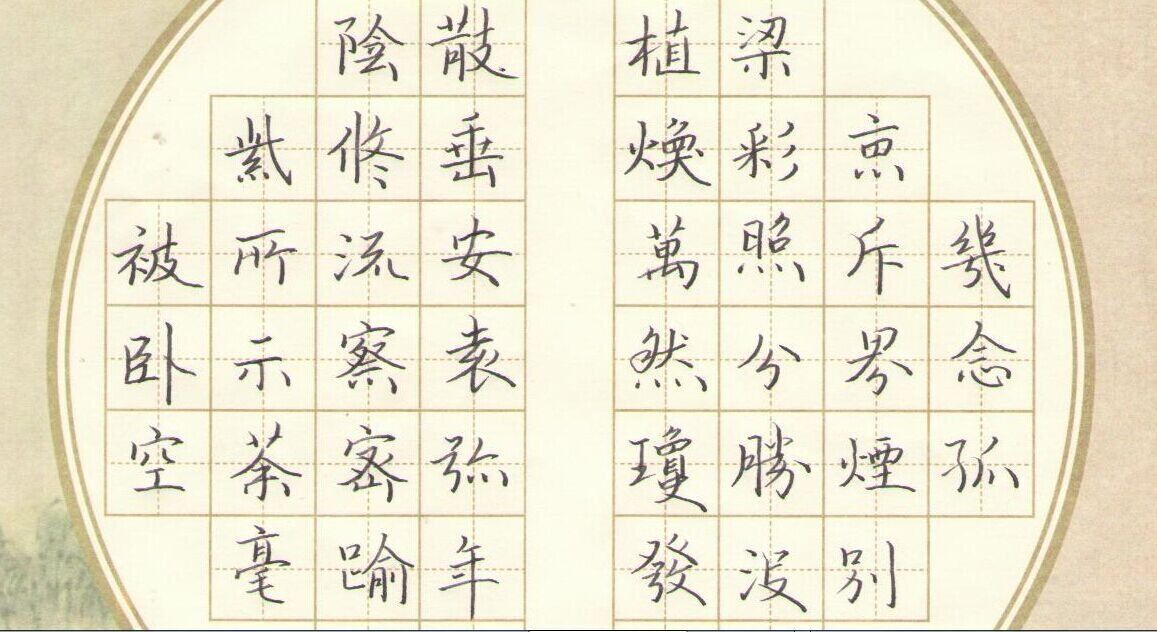 幾念孤
京斥界煙別
梁彩照分勝沒
植煥萬然瓊發
散垂安袁弥年
陰修流察密踰
紫所示荼毫
被卧空